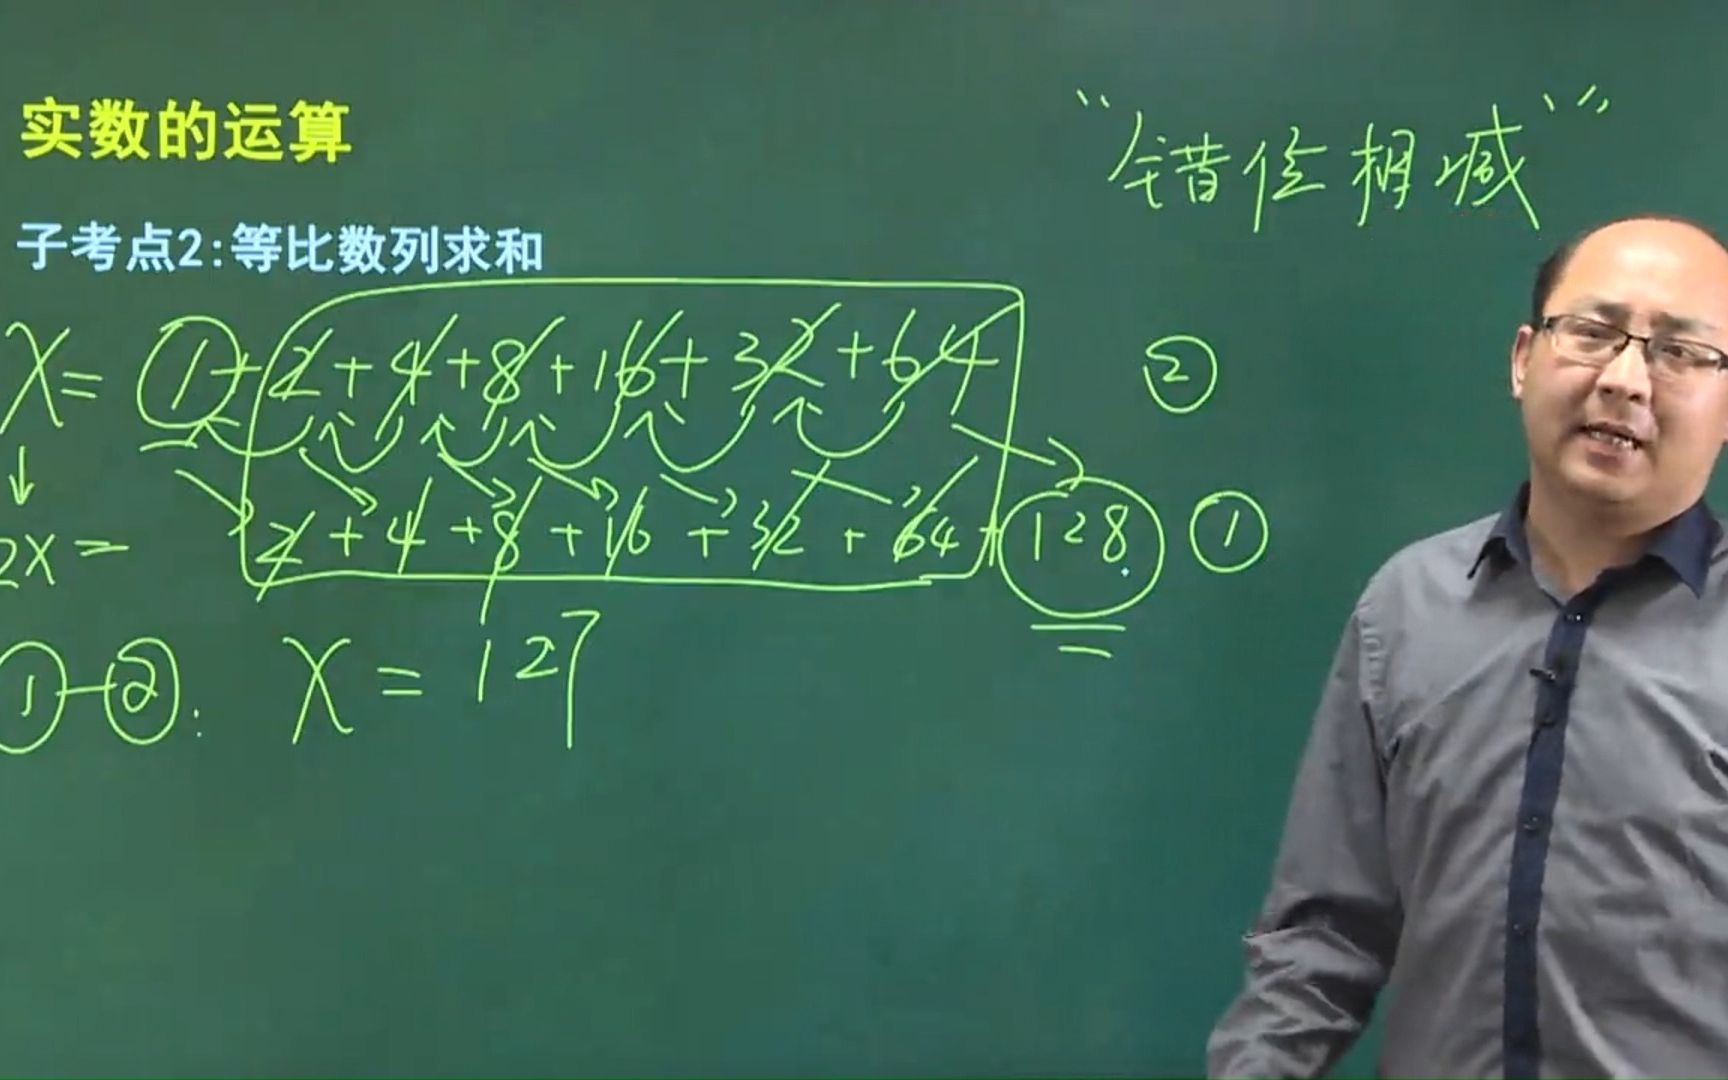 实数的运算
“错位相减”
子考点2:等比数列求和
X= ①+2+4+8+16+32+64 ②
2X= 2+4+8+16+32+64+128 ①
①-②: X=127